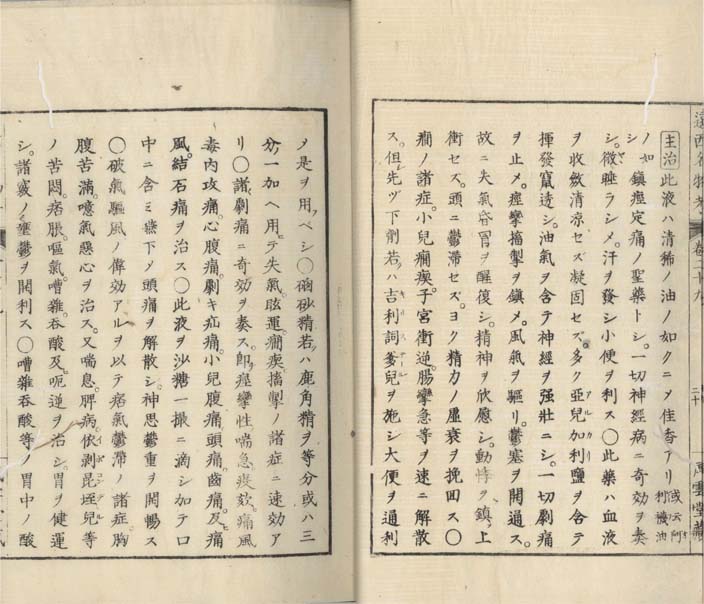 遠西名物考 卷二十九 二十 風雲堂藏
主治此液ハ清稀ノ油ノ如クニ〆佳香アリ或云阿利襪油
ノ如シ鎮痙定痛ノ聖藥トシ。一切神經病ニ奇効ヲ奏
シ。微睡ラシメ。汗ヲ發シ小便ヲ利ス〇此藥ハ血液
ヲ收斂清涼セズ凝固セズ。多ク亞兒加利鹽ヲ含テ
揮發竄透シ。油氣ヲ含テ神經ヲ强壯ニシ。一切劇痛
ヲ止メ。痙攣搐掣ヲ鎮メ。風氣ヲ驅リ。鬱塞ヲ開通ス。
故ニ失氣昏冒ヲ醒復シ。精神ヲ欣慰シ。動悸ヲ鎮。上
衝セズ。頭ニ鬱滯セズ。ヨク精力ノ虛衰ヲ挽回ス〇
癎ノ諸症。小兒癎瘈。子宮衝逆。腸攣急等ヲ速ニ解散
ス。但先ヅ下劑若ハ吉利詞爹兒ヲ施シ大便ヲ通利
〆是ヲ用ベシ〇硇砂精若ハ鹿角精ヲ等分或ハ三
分一加ヘ用テ失氣眩運。癎瘈搐掣ノ諸症ニ速効ア
リ〇諸劇痛ニ奇効ヲ奏ス。卽痙攣性喘急。痰欬。痛風
毒內攻痛。心腹痛。劇キ疝痛。小兒腹痛。頭痛。齒痛。及痛
風。結石痛ヲ治ス〇此液ヲ沙糖一撮ニ滴シ加テ口
中ニ含ミ嚥下〆頭痛ヲ解散シ。神思鬱重ヲ開暢ス
〇破氣驅風ノ偉効アルヲ以テ痞氣鬱滯ノ諸症。胸
腹苦滿。噫氣惡心ヲ治ス。又喘息。脾病。依剝昆垤兒等
ノ苦悶。痞脹。嘔氣。嘈雜。呑酸及呃逆ヲ治シ。胃ヲ健運
シ。諸竅ノ壅鬱ヲ開利ス〇嘈雜呑酸等ノ胃中ノ酸